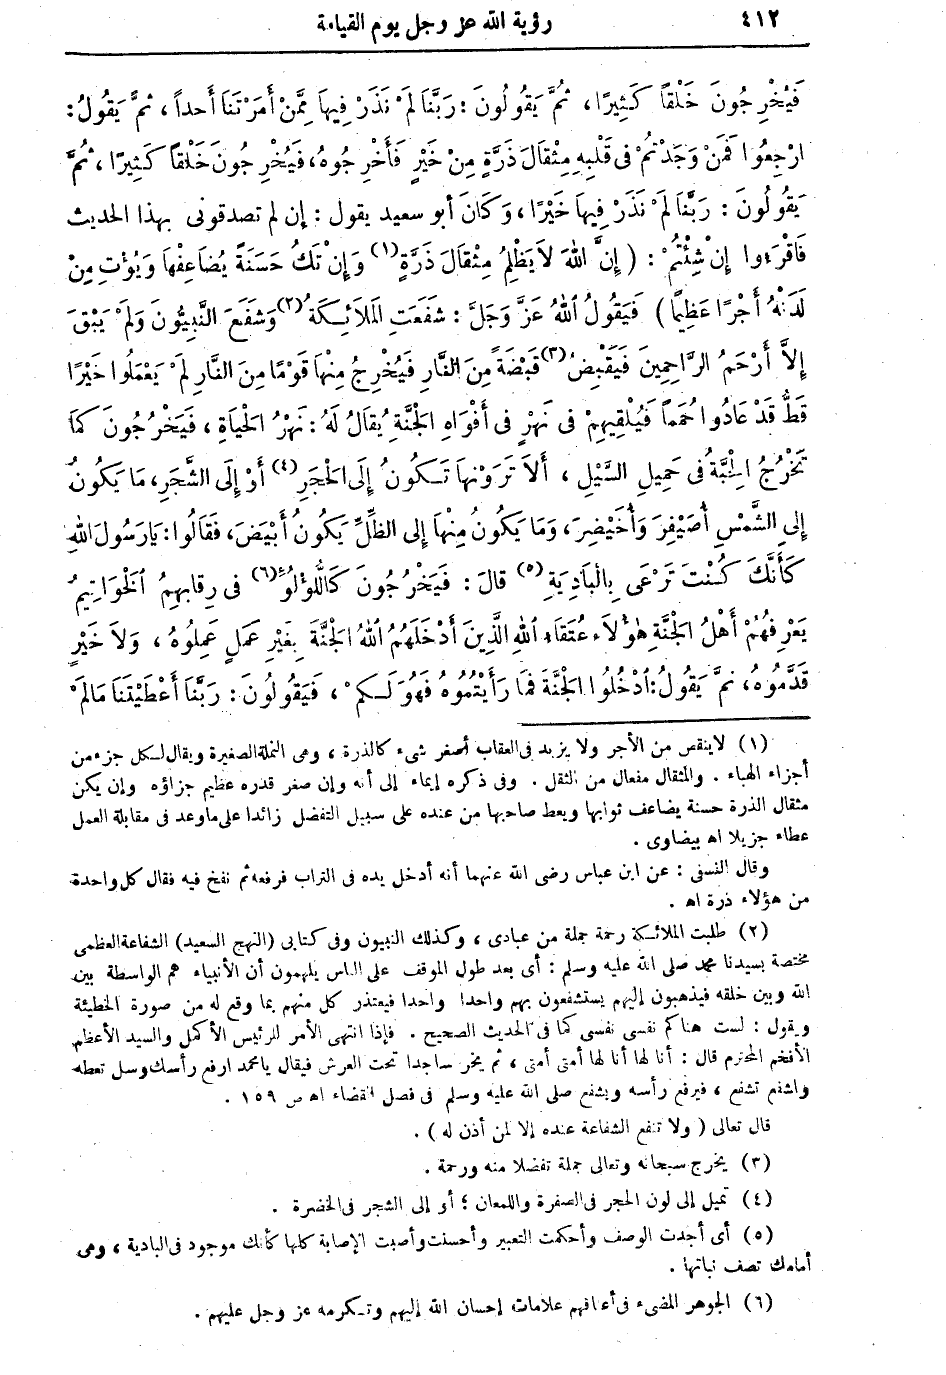 ٤١٢ رؤية الله عز وجل يوم القيامة
فَيُخْرِجُونَ خَلْقاً كَثِيرًا، ثُمَّ يَقُولُونَ: رَبَّنَا لَمْ نَذَرْ فِيهَا مِمَّنْ أَمَرْتَنَا أَحداً، ثمَّ يَقُولُ:
ارْجِعُوا فَمَنْ وَجَدْتُمْ فى قَلْبِهِ مِثْقَالَ ذَرَّةٍ مِنْ خَيْرٍ فَأَخْرِجُوهُ، فَيُخْرِجُونَ خَلْقاً كَثِيرًا، ثُمَّ
يَقُولُونَ: رَبَّنَا لَمْ نَذَرْ فِيهَا خَيْرًا، وَكَانَ أبو سعيد يقول: إن لم تصدقونى بهذا الحديث
فَاقْرَءوا إِنْ شِئْتُمْ: (إِنَّ اللهَ لاَ يَظْلِمُ مِثْقَالَ ذَرَّةٍ(١) وَإِنْ تَكُ حَسَنَةً يُضَاعِفْهَا وَيُؤْتِ مِنْ
لَدَنْهُ أَجْرًا عَظِيمًا) فَيَقُولُ اللهُ عَزَّ وَجَلَّ: شَفَعَتِ المَلاَئِكَةُ(٢) وَشَفَعَ النَّبِيُّونَ وَلَمْ يَبْقَ
إِلاَّ أَرْحَمُ الرَّاحِمِينَ فَيَقْبِضُ(٣) قَبْضَةً مِنَ النَّارِ فَيُخْرِجُ مِنْهَا قَوْمًا مِنَ النَّارِ لَمْ يَعْمَلُوا خَيْرًا
قَطُّ قَدْ عَادُوا حُمَماً فَيُلْقِيهِمْ فى نَهْرٍ فى أَفْوَاهِ الجَنَّةِ يُقَالُ لَهُ: نَهْرُ الحَيَاةِ، فَيَخْرُجُونَ كَمَا
تَخْرُجُ الحِبَّةُ فى حَمِيلِ السَّيْلِ، أَلاَ تَرَوْنَهَا تَكُونُ إِلَى الحَجَرِ(٤) أَوْ إِلَى الشَّجَرِ، مَا يَكُونُ
إِلى الشَّمْسِ أُصَيْفِرَ وَأُخَيْضِرَ، وَمَا يَكُونُ مِنْهَا إِلى الظِّلِّ يَكُونُ أَبْيَضَ، فَقَالُوا: يَارَسُولَ اللهِ
كَأَنَّكَ كُنْتَ تَرْعَى بِالْبَادِيَةِ(٥) قالَ: فَيَخْرُجُونَ كَاللُّؤْلُوُءِ(٦) فى رِقَابِهِمُ الْخَوَاتِيمُ
يَعْرِفُهُمْ أَهْلُ الجَنَّةِ هٰؤُلاَءِ عُتَقَاء اللهِ الَّذِينَ أَدْخَلَهُمُ اللهُ الجَنَّةَ بِغَيْرِ عَمَلٍ عَمِلُوهُ، وَلاَ خَيْرٍ
قَدَّمُوهُ، ثمَّ يَقُولُ: ادْخُلُوا الجَنَّةَ فَمَا رَأَيْتُمُوهُ فَهُوَ لَكُمْ، فَيَقُولُونَ: رَبَّنَا أَعْطَيْتَنَا مَالَمْ
(١) لاينقص من الأجر ولا يزيد فى العقاب أصغر شىء كالذرة، وهى النملة الصغيرة ويقال لكل جزء من
أجزاء الهباء. والمثقال مفعال من الثقل. وفى ذكره إيماء إلى أنه وإن صغر قدره عظيم جزاؤه وإن يكن
مثقال الذرة حسنة يضاعف ثوابها ويعط صاحبها من عنده على سبيل التفضل زائدا على ماوعد فى مقابلة العمل
عطاء جزيلا اه بيضاوى.
وقال النسفى: عن ابن عباس رضى الله عنهما أنه أدخل يده فى التراب فرفعه ثم نفخ فيه فقال كل واحدة
من هؤلاء ذرة اه.
(٢) طلبت الملائكة رحمة جملة من عبادى، وكذلك النبيون وفى كتابى (النهج السعيد) الشفاعة العظمى
مختصة بسيدنا محمد صلى الله عليه وسلم: أى بعد طول الموقف على الناس يلهمون أن الأنبياء هم الواسطة بين
الله وبين خلقه فيذهبون إليهم يستشفعون بهم واحدا واحدا فيعتذر كل منهم بما وقع له من صورة الخطيئة
ويقول: لست هناكم نفسى نفسى كما فى الحديث الصحيح. فإذا انتهى الأمر للرئيس الأكمل والسيد الأعظم
الأفخم المحترم قال: أنا لها أنا لها أمتى أمتى، ثم يخر ساجدا تحت العرش فيقال يامحمد ارفع رأسك وسل تعطه
واشفع تشفع، فيرفع رأسه ويشفع صلى الله عليه وسلم فى فصل القضاء اه ص ١٥٩.
قال تعالى (ولا تنفع الشفاعة عنده إلا لمن أذن له).
(٣) يخرج سبحانه وتعالى جملة تفضلا منه ورحمة.
(٤) تميل إلى لون الحجر فى الصفرة واللمعان؛ أو إلى الشجر فى الخضرة.
(٥) أى أجدت الوصف وأحكمت التعبير وأحسنت وأصبت الإصابة كلها كأنك موجود فى البادية، وهى
أمامك تصف نباتها.
(٦) الجوهر المضىء فى أعناقهم علامات إحسان الله إليهم وتكرمه عز وجل عليهم.